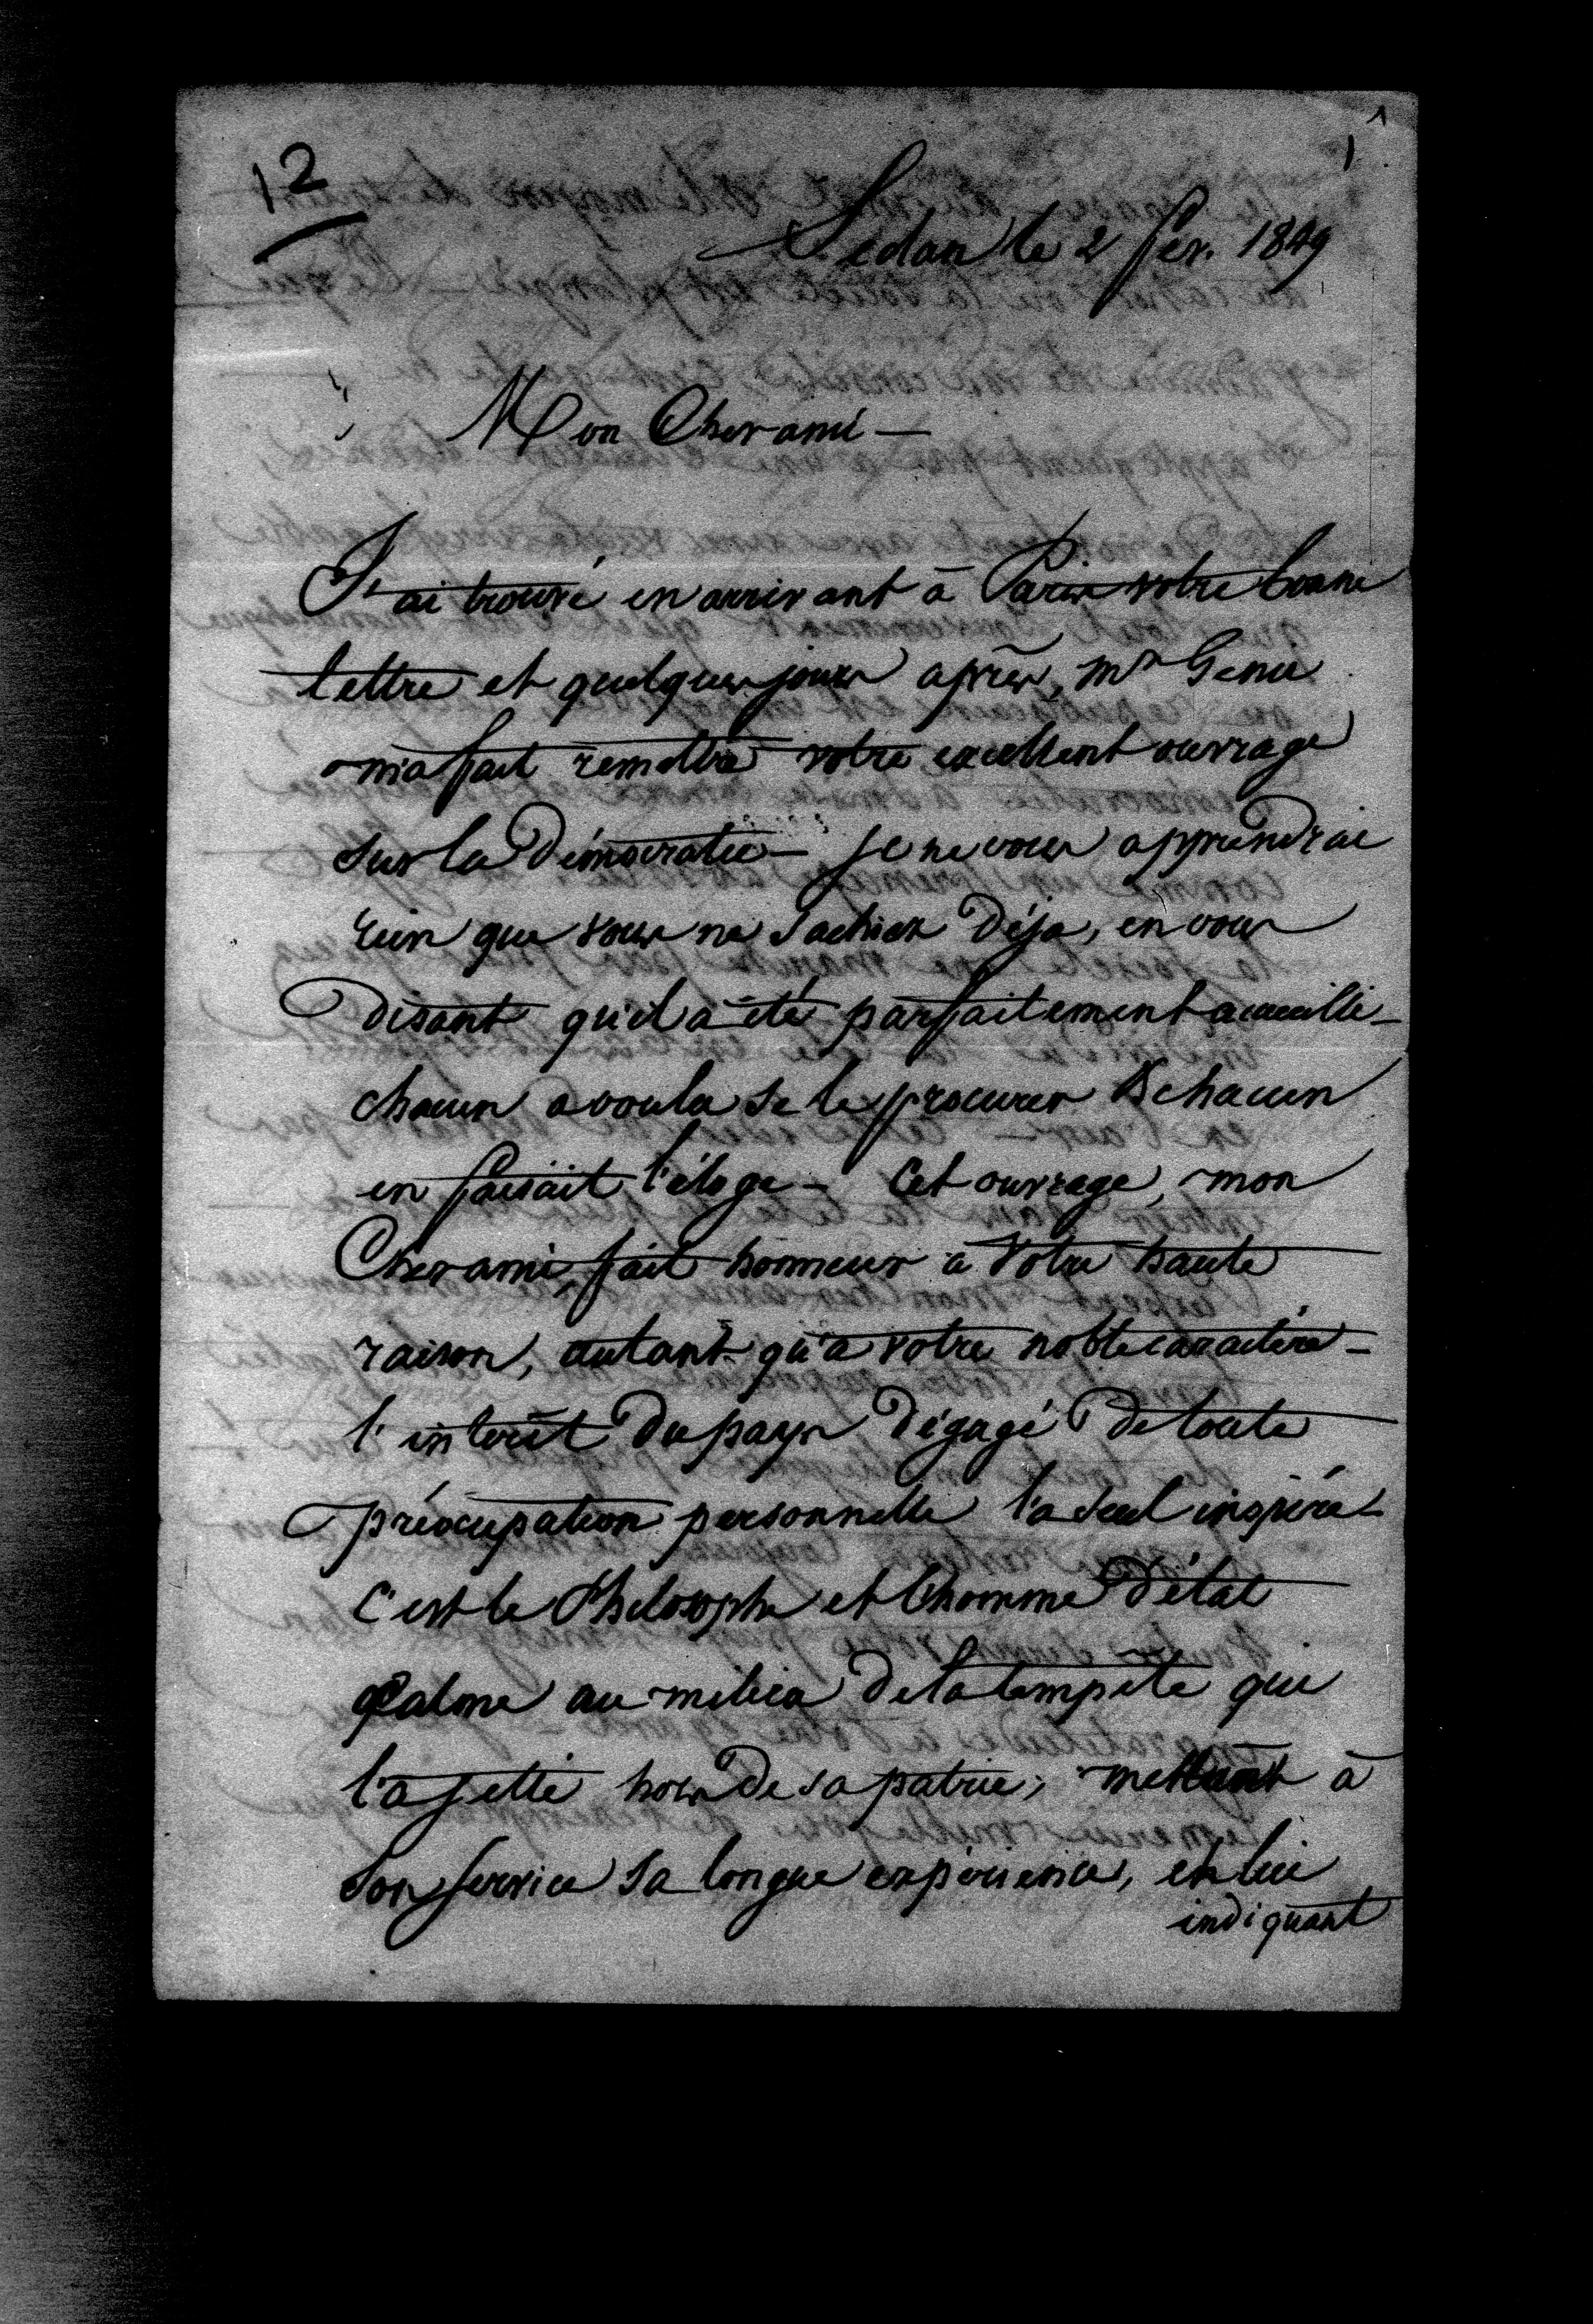 12
1
Sedan le 2 fev. 1849
Mon Cher ami —
J'ai trouvé en arrivant à Paris votre bonne
lettre et quelques jours après, Mr Genie
m'a fait remettre votre excellent ouvrage
sur la Démocratie — je ne vous apprendrai
rien que vous ne sachiez déja, en vous
disant qu'il a été parfaitement accueilli —
chacun a voulu se le procurer & chacun
en faisait l'éloge — Cet ouvrage, mon
Cher ami, fait honneur à votre haute
raison, autant qu'à votre noble caractère —
l'intérêt du pays dégagé de toute
préocupation personnelle l'a seul inspiré —
C'est le Philosophe et l'homme d'état
Calme au milieu de la tempête qui
l'a jetté hors de sa patrie, mettant à
son service sa longue expérience, et lui
indiquant